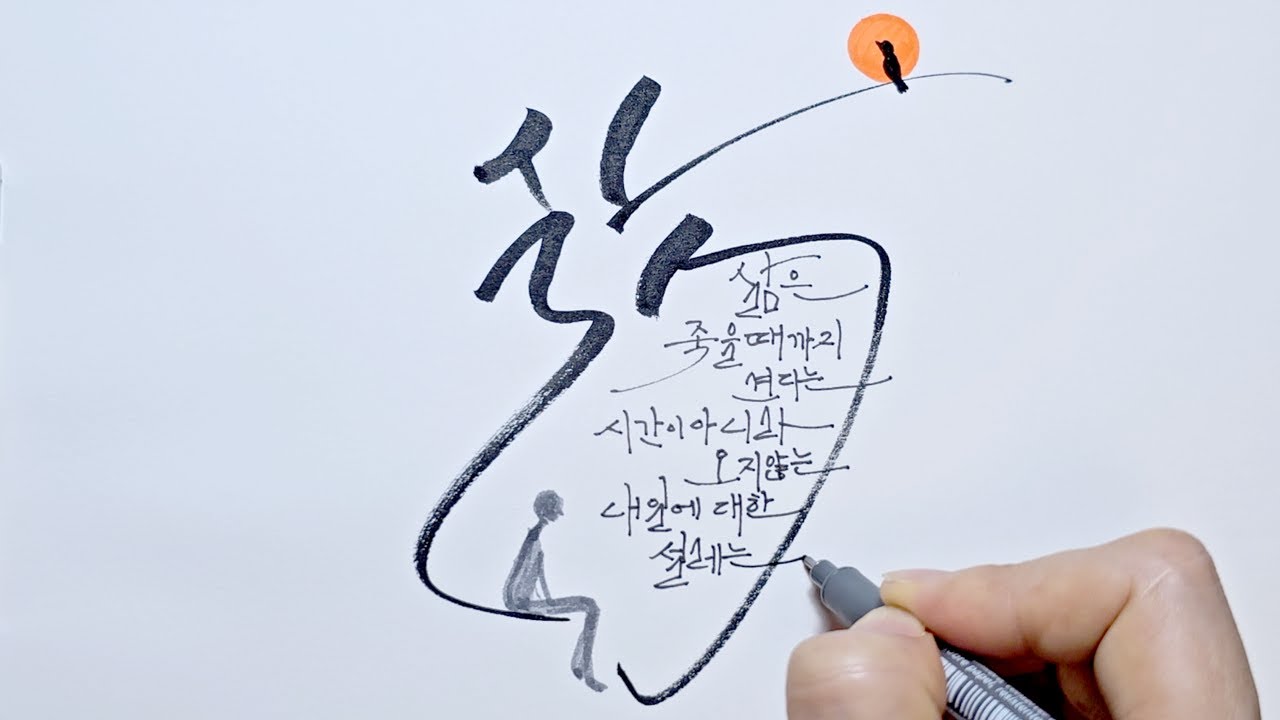 삶
삶은
죽을때까지
견디는
시간이아니라
오지않는
내일에 대한
설레는